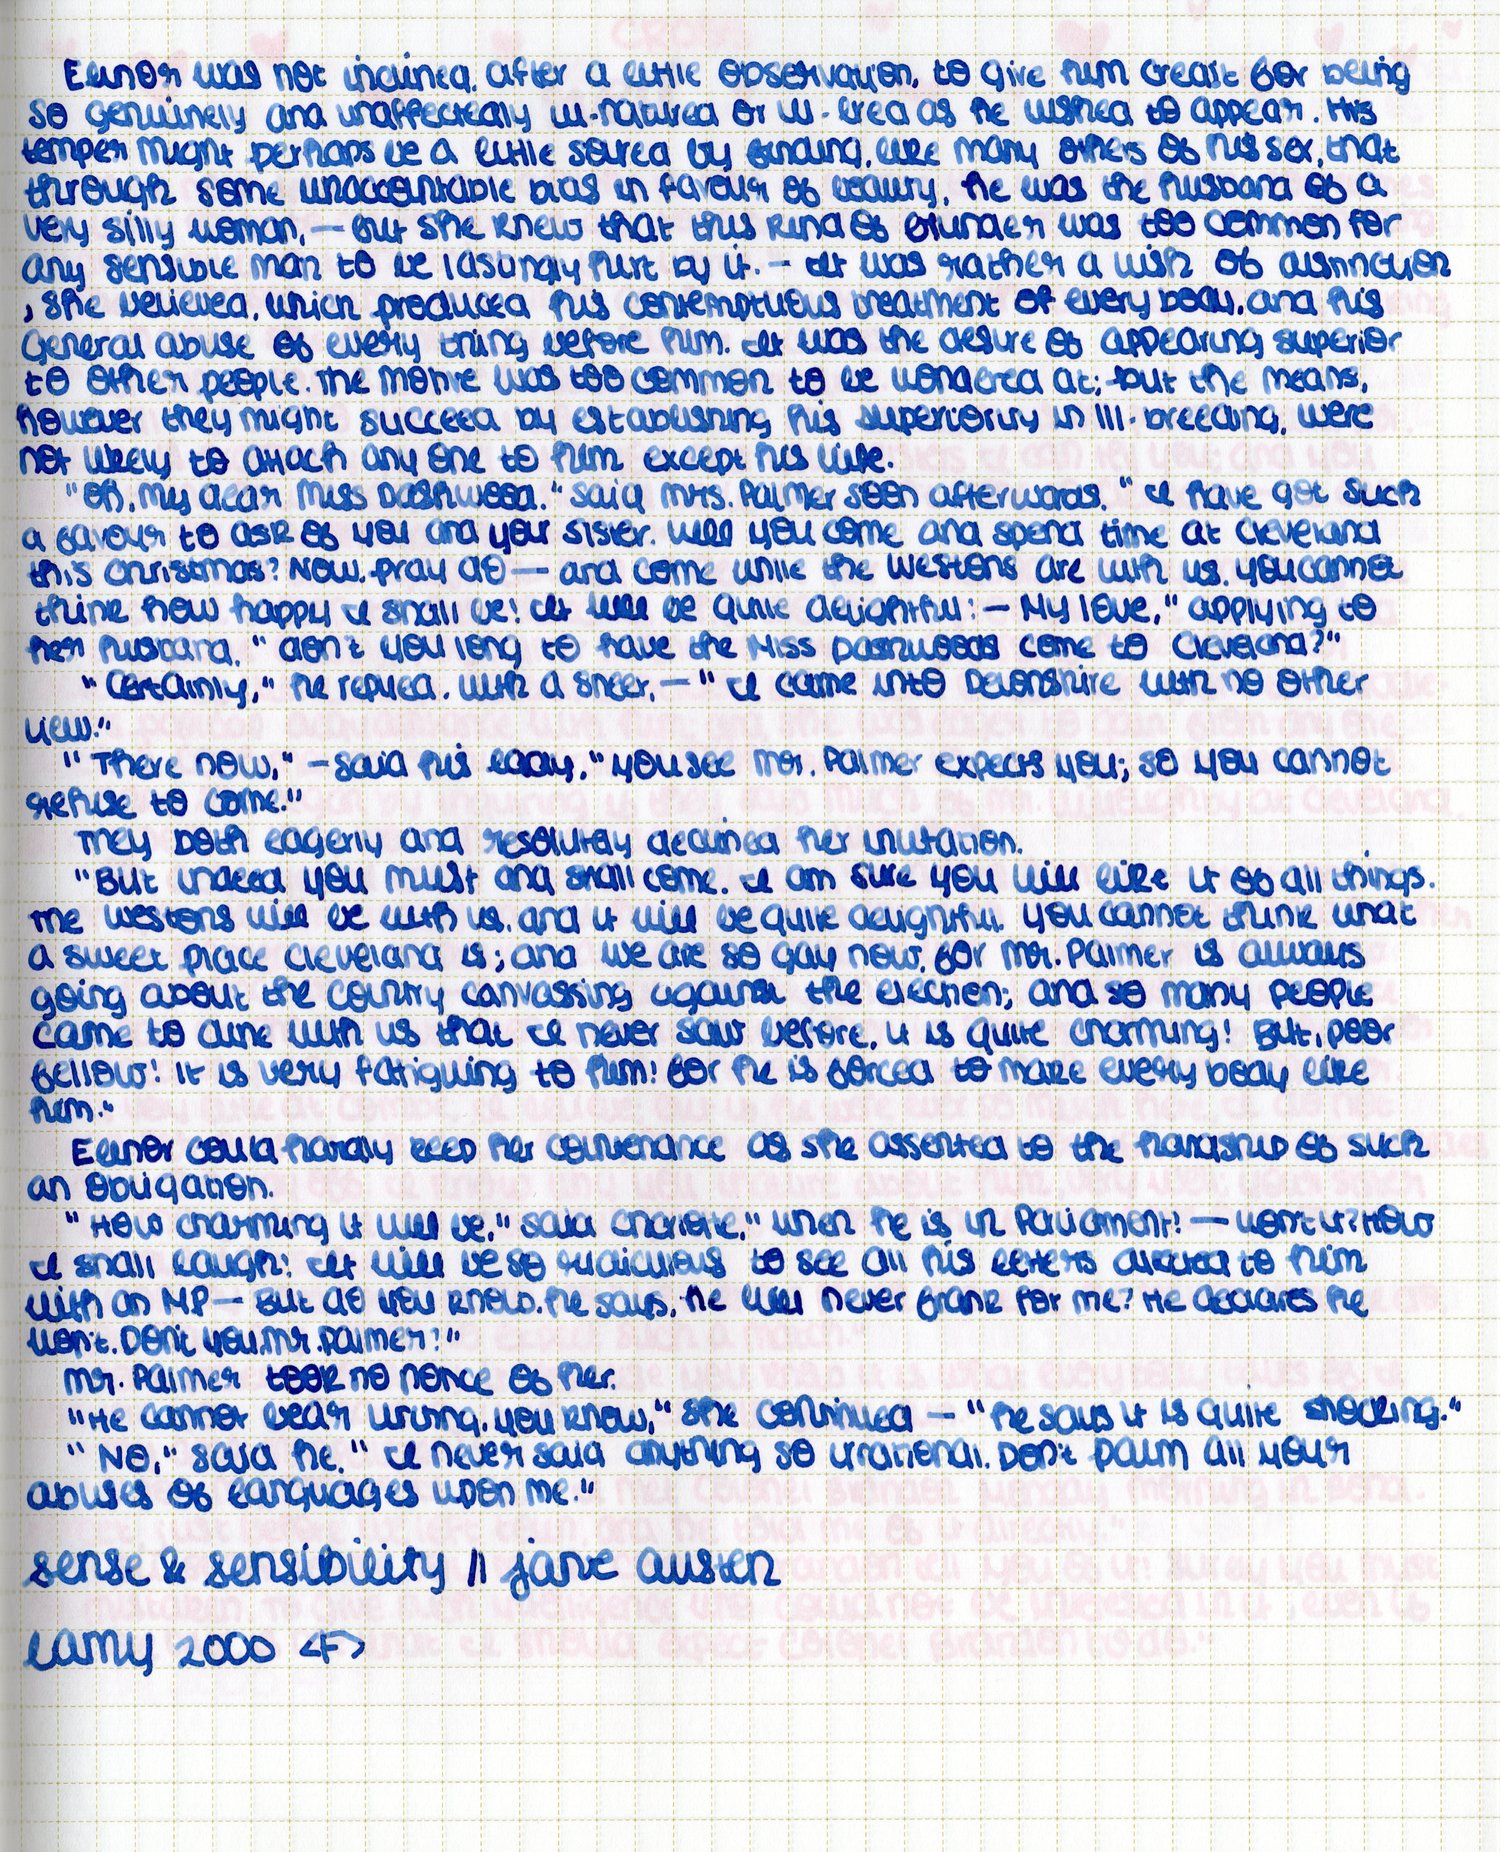 Elinor was not inclined, after a little observation, to give him credit for being
so genuinely and unaffectedly ill-natured or ill-bred as he wished to appear. His
temper might perhaps be a little soured by finding, like many others of his sex, that
through some unaccountable bias in favour of beauty, he was the husband of a
very silly woman, — but she knew that this kind of blunder was too common for
any sensible man to be lastingly hurt by it. — It was rather a wish of distinction
, she believed, which produced his contemptuous treatment of every body, and his
general abuse of every thing before him. It was the desire of appearing superior
to other people. The motive was too common to be wondered at; but the means,
however they might succeed by establishing his superiority in ill-breeding, were
not likely to attach any one to him except his wife.
"Oh, my dear Miss Dashwood," said Mrs. Palmer soon afterwards, "I have got such
a favour to ask of you and your sister. Will you come and spend time at Cleveland
this Christmas? Now, pray do — and come while the Westons are with us. You cannot
think how happy I shall be! It will be quite delightful! — My love," applying to
her husband, "don't you long to have the Miss Dashwoods come to Cleveland?"
"Certainly," he replied, with a sneer, — "I came into Devonshire with no other
view."
"There now," — said his lady, "you see Mr. Palmer expects you; so you cannot
refuse to come."
They both eagerly and resolutely declined her invitation.
"But indeed you must and shall come. I am sure you will like it of all things.
The Westons will be with us, and it will be quite delightful. You cannot think what
a sweet place Cleveland is; and we are so gay now, for Mr. Palmer is always
going about the country canvassing against the election; and so many people
came to dine with us that I never saw before, it is quite charming! But, poor
fellow! it is very fatiguing to him! for he is forced to make every body like
him."
Elinor could hardly keep her countenance as she assented to the hardship of such
an obligation.
"How charming it will be," said Charlotte, "when he is in Parliament! — won't it? How
I shall laugh! It will be so ridiculous to see all his letters directed to him
with an MP — But do you know, he says, he will never frank for me? He declares he
won't. Don't you, Mr. Palmer?"
Mr. Palmer took no notice of her.
"He cannot bear writing, you know," she continued — "he says it is quite shocking."
"No," said he, "I never said anything so irrational. Don't palm all your
abuses of languages upon me."
sense & sensibility // jane austen
lamy 2000 <F>